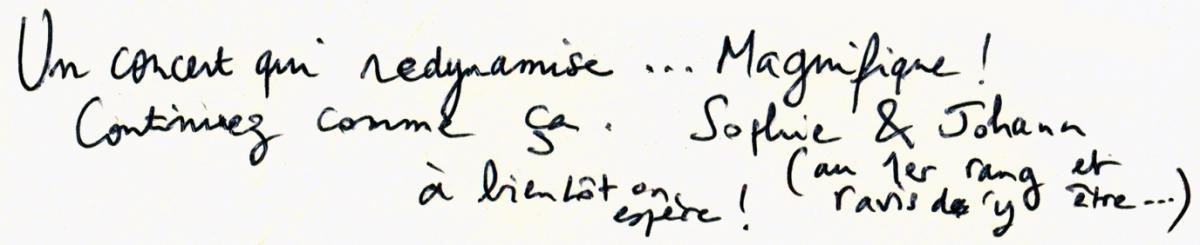 Un concert qui redynamise ... Magnifique !
Continuez comme ça. Sophie & Johann
à bientôt on espère !
(au 1er rang et
ravis d'y être ...)